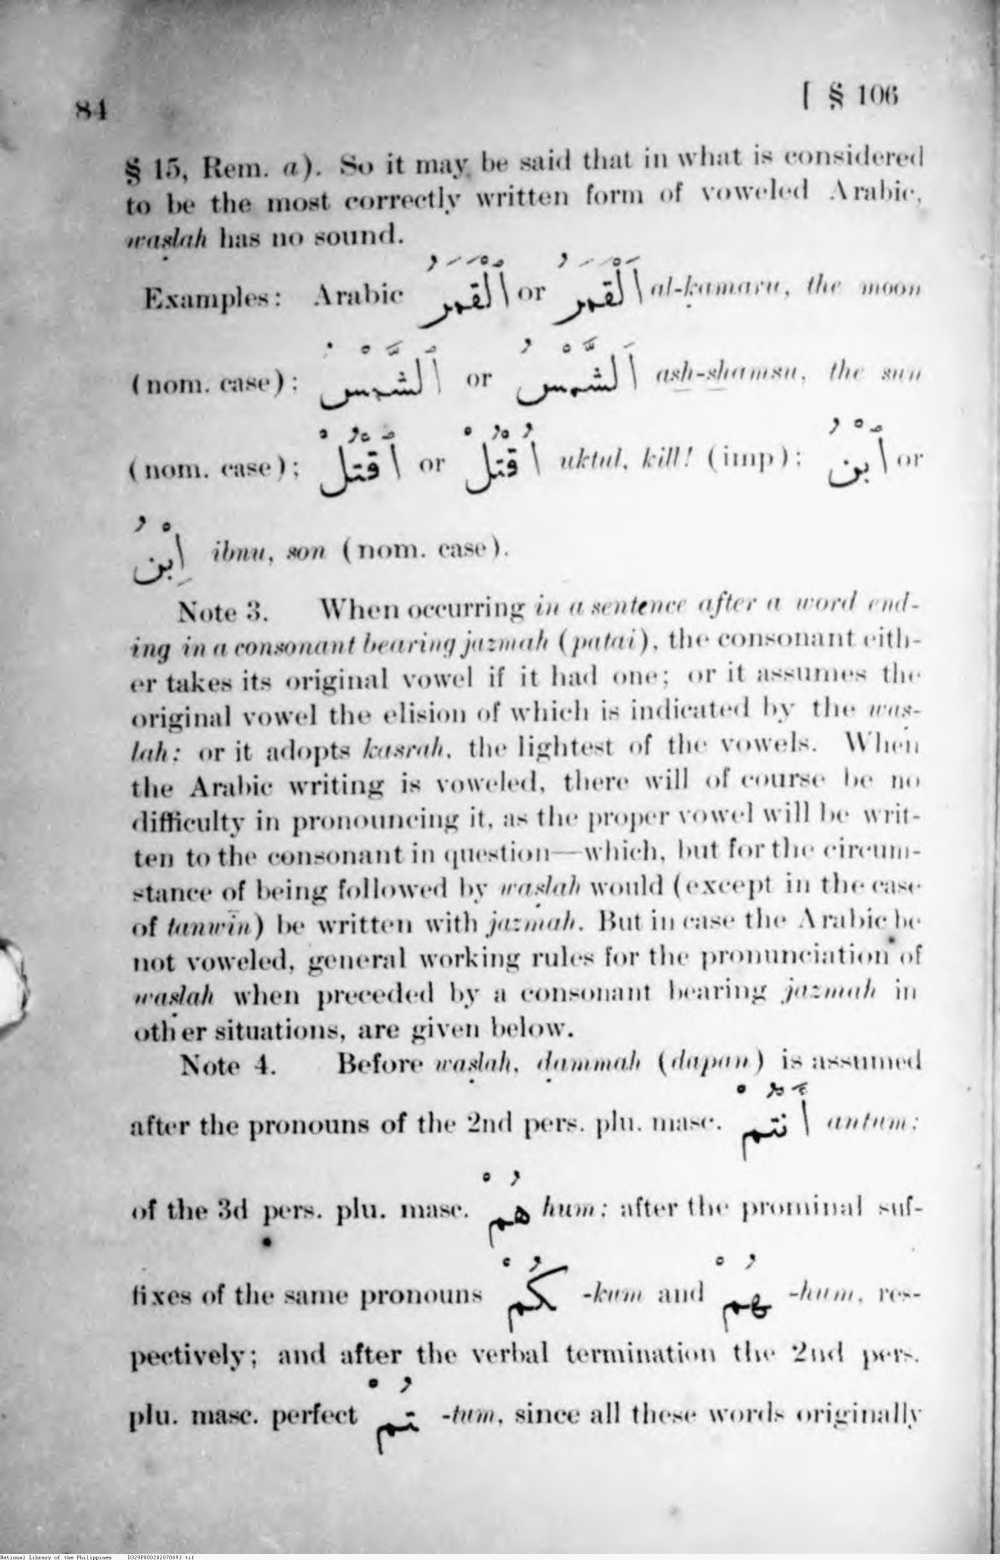 84
[ § 106
§ 15, Rem. a). So it may be said that in what is considered
to be the most correctly written form of voweled Arabic,
waṣlah has no sound.
Examples: Arabic اَلْقَمَرُ or اَلْقَمَرُ al-ḳamaru, the moon
(nom. case): اَلشَّمْسُ or اَلشَّمْسُ ash-shamsu, the sun
(nom. case); اُقْتُلْ or اُقْتُلْ uktul, kill! (imp): اَبْنُ or
اِبْنُ ibnu, son (nom. case).
Note 3. When occurring in a sentence after a word end-
ing in a consonant bearing jazmah (patai), the consonant eith-
er takes its original vowel if it had one; or it assumes the
original vowel the elision of which is indicated by the was-
lah; or it adopts kasrah, the lightest of the vowels. When
the Arabic writing is voweled, there will of course be no
difficulty in pronouncing it, as the proper vowel will be writ-
ten to the consonant in question—which, but for the circum-
stance of being followed by waṣlah would (except in the case
of tanwīn) be written with jazmah. But in case the Arabic be
not voweled, general working rules for the pronunciation of
waṣlah when preceded by a consonant bearing jazmah in
other situations, are given below.
Note 4. Before waṣlah, ḍammah (dapan) is assumed
after the pronouns of the 2nd pers. plu. masc. أَنْتُمْ antum;
of the 3d pers. plu. masc. هُمْ hum; after the prominal suf-
fixes of the same pronouns كُمْ -kum and هُمْ -hum, res-
pectively; and after the verbal termination the 2nd pers.
plu. masc. perfect تُمْ -tum, since all these words originally
National Library of the Philippines